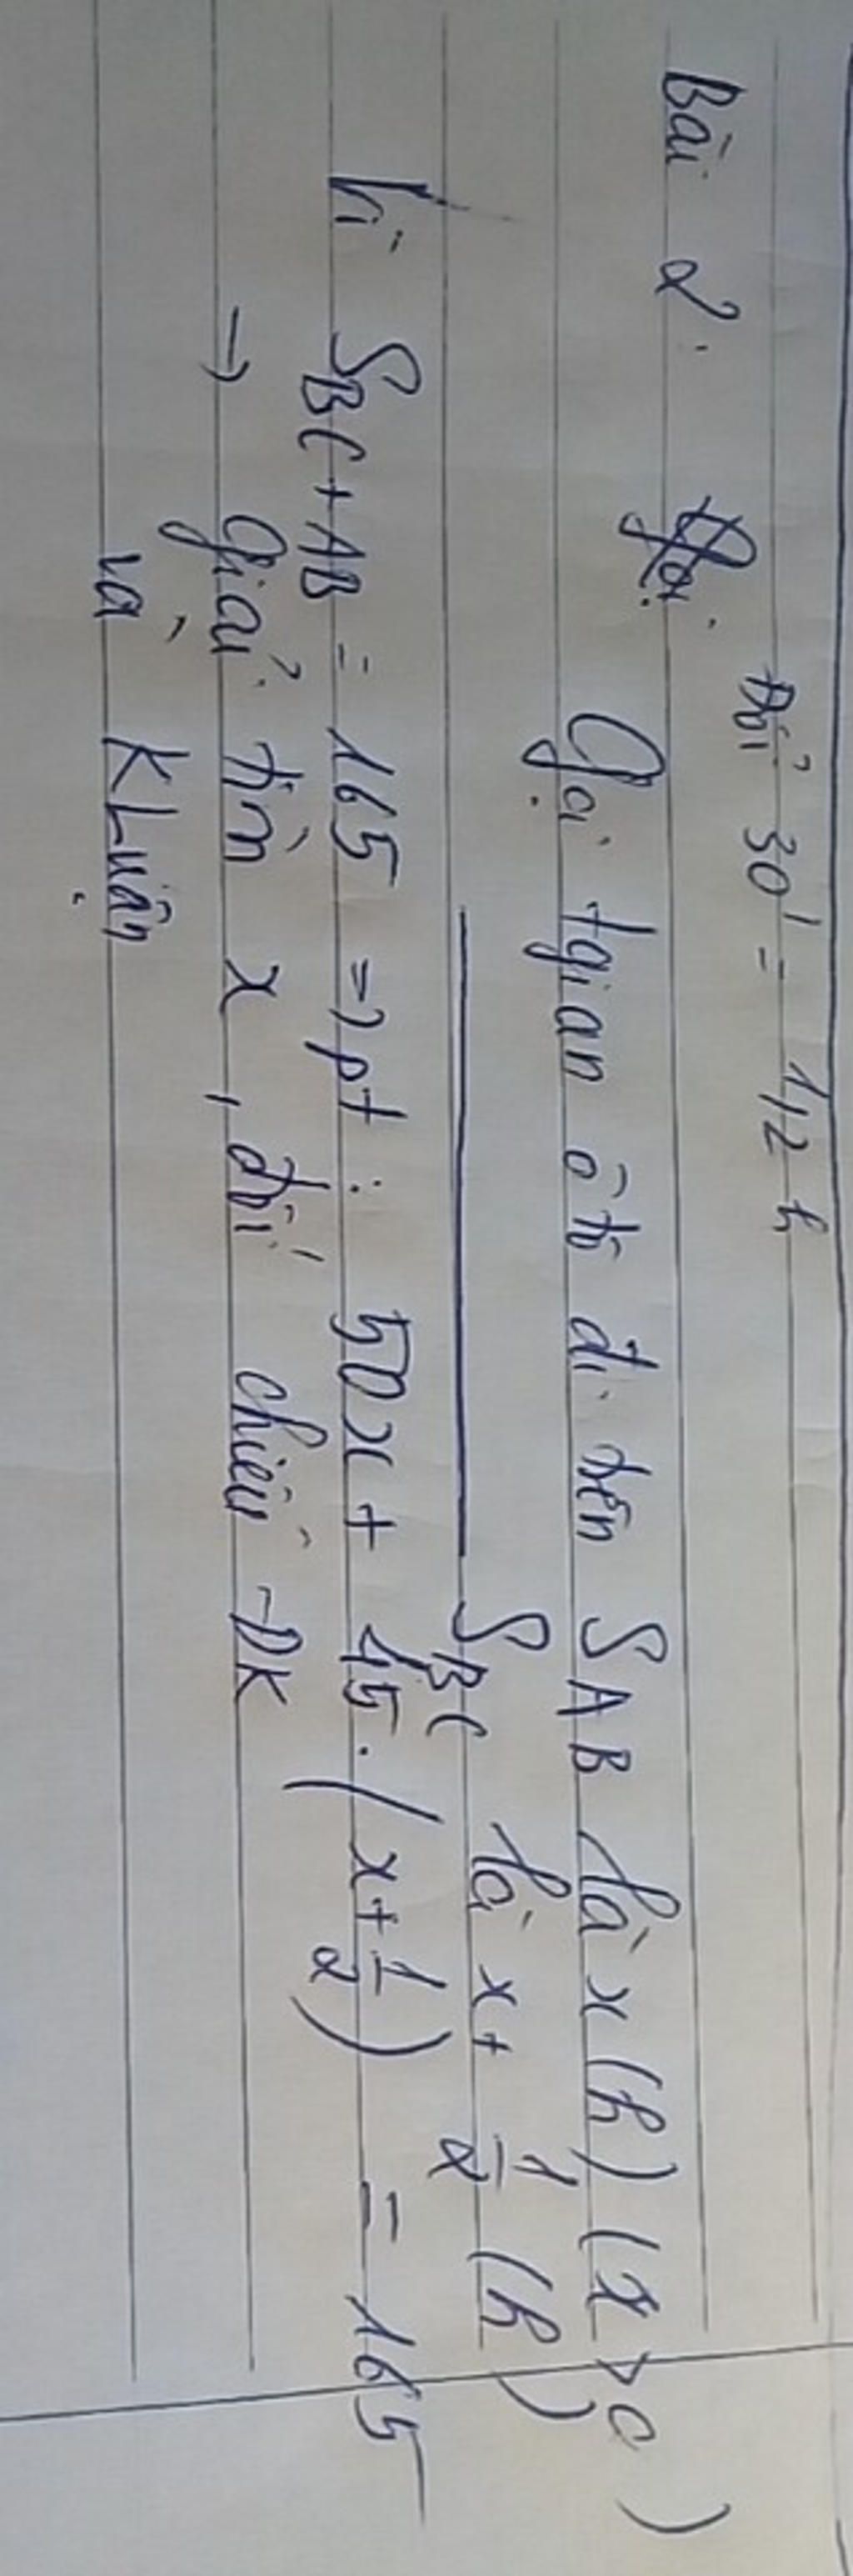 Đổi 30' = 1/2 h
Bài 2: Gọi
Gọi tgian ô tô đi trên SAB là x (h) (x > 0)
SBC là x + 1/2 (h)
Vì SBC + AB = 165 => pt : 50x + 45.(x + 1/2) = 165
→ Giải tìm x, đối chiếu ĐK
và KLuận